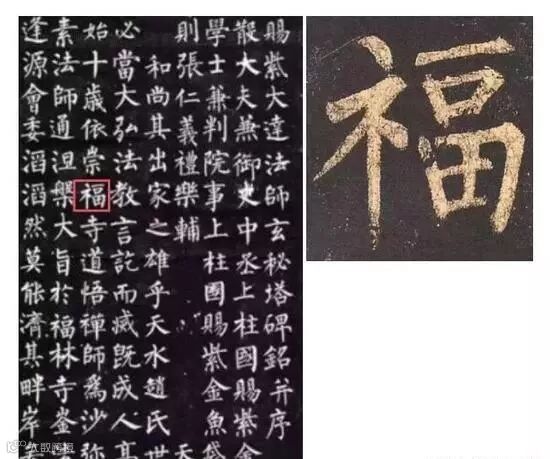 賜紫大達法師玄秘塔碑銘并序
散大夫兼御史中丞上柱國賜紫金
學士兼判院事上柱國賜紫金魚袋
則張仁義禮樂輔 天
和尚其出家之雄乎天水趙氏世
必當大弘法教言訖而滅既成人高
始十歲依崇福寺道悟禪師為沙弥
素法師通涅槃大旨於福林寺崟
逢源會委滔滔然莫能濟其畔岸
福